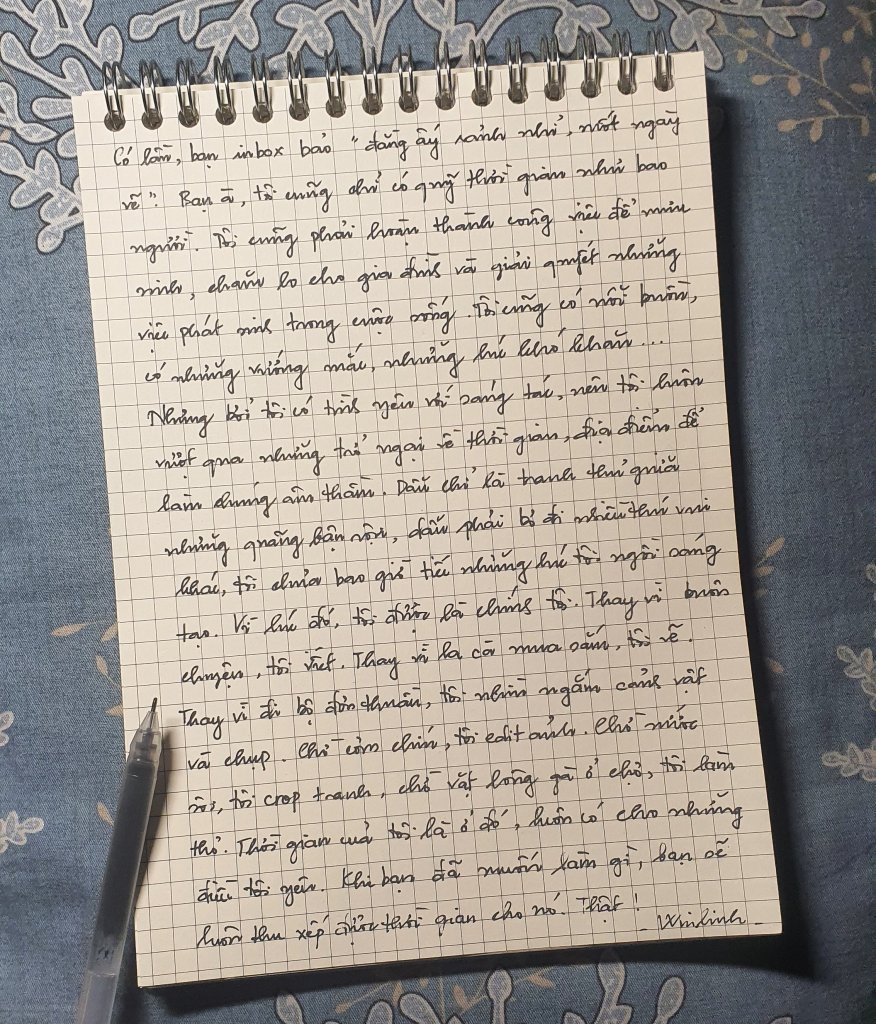 Có lần, bạn inbox bảo "đằng ấy rảnh nhỉ, suốt ngày
vẽ". Bạn à, tôi cũng chỉ có quỹ thời gian như bao
người. Tôi cũng phải hoàn thành công việc để mưu
sinh, chăm lo cho gia đình và giải quyết những
việc phát sinh trong cuộc sống. Tôi cũng có nỗi buồn,
có những vướng mắc, những lúc khó khăn...
Nhưng bởi tôi có tình yêu với sáng tác, nên tôi luôn
vượt qua những trở ngại về thời gian, địa điểm để
làm chúng âm thầm. Dẫu chỉ là tranh thủ giữa
những quãng bận rộn, dẫu phải bỏ đi nhiều thú vui
khác, tôi chưa bao giờ tiếc những lúc tôi ngồi sáng
tạo. Vì lúc đó, tôi được là chính tôi. Thay vì buôn
chuyện, tôi viết. Thay vì la cà mua sắm, tôi vẽ.
Thay vì đi bộ đơn thuần, tôi nhìn ngắm cảnh vật
và chụp. Chờ cơm chín, tôi edit ảnh. Chờ nước
sôi, tôi crop tranh, chờ vặt lông gà ở chợ, tôi làm
thơ. Thời gian của tôi là ở đó, luôn có cho những
điều tôi yêu. Khi bạn đã muốn làm gì, bạn sẽ
luôn thu xếp được thời gian cho nó. Thật!
- Winlinh -